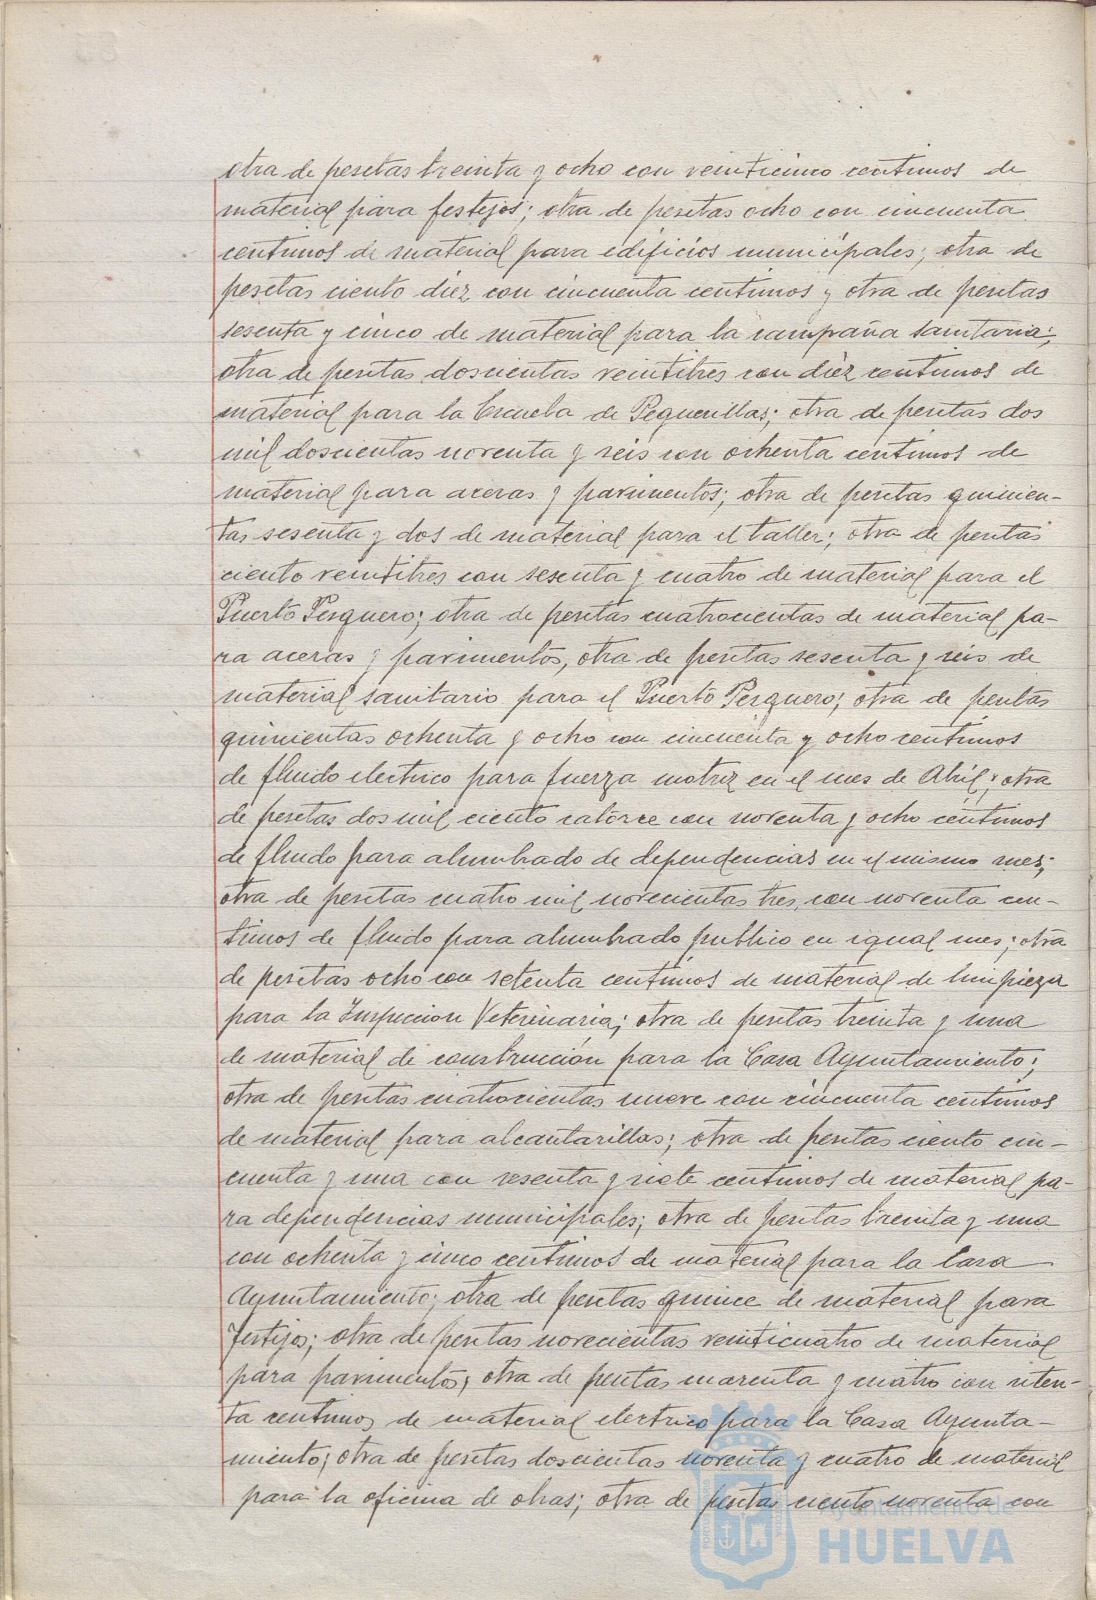 otra de pesetas treinta y ocho con veinticinco centimos de
material para festejos; otra de pesetas ocho con cincuenta
centimos de material para edificios municipales; otra de
pesetas ciento diez con cincuenta centimos y otra de pesetas
sesenta y cinco de material para la campaña sanitaria;
otra de pesetas doscientas veintitres con diez centimos de
material para la Escuela de Pequenillas; otra de pesetas dos
mil doscientas noventa y seis con ochenta centimos de
material para aceras y pavimentos; otra de pesetas quinien-
tas sesenta y dos de material para el taller; otra de pesetas
ciento veintitres con sesenta y cuatro de material para el
Puerto Pesquero; otra de pesetas cuatrocientas de material pa-
ra aceras y pavimentos, otra de pesetas sesenta y seis de
material sanitario para el Puerto Pesquero; otra de pesetas
quinientas ochenta y ocho con cincuenta y ocho centimos
de fluido electrico para fuerza motriz en el mes de Abril; otra
de pesetas dos mil ciento catorce con noventa y ocho céntimos
de fluido para alumbrado de dependencias en el mismo mes;
otra de pesetas cuatro mil novecientas tres, con noventa cen-
timos de fluido para alumbrado publico en igual mes; otra
de pesetas ocho con setenta centimos de material de limpieza
para la Inspeccion Veterinaria; otra de pesetas treinta y una
de material de construcción para la Casa Ayuntamiento;
otra de pesetas cuatrocientas nueve con cincuenta centimos
de material para alcantarillas; otra de pesetas ciento cin-
cuenta y una con sesenta y siete centimos de material pa-
ra dependencias municipales; otra de pesetas treinta y una
con ochenta y cinco centimos de material para la Casa
Ayuntamiento; otra de pesetas quince de material para
festejos; otra de pesetas novecientas veinticuatro de material
para pavimentos; otra de pesetas cuarenta y cuatro con seten-
ta centimos de material electrico para la Casa Ayunta-
miento; otra de pesetas doscientas noventa y cuatro de material
para la oficina de obras; otra de pesetas ciento noventa con
Ayuntamiento de
HUELVA